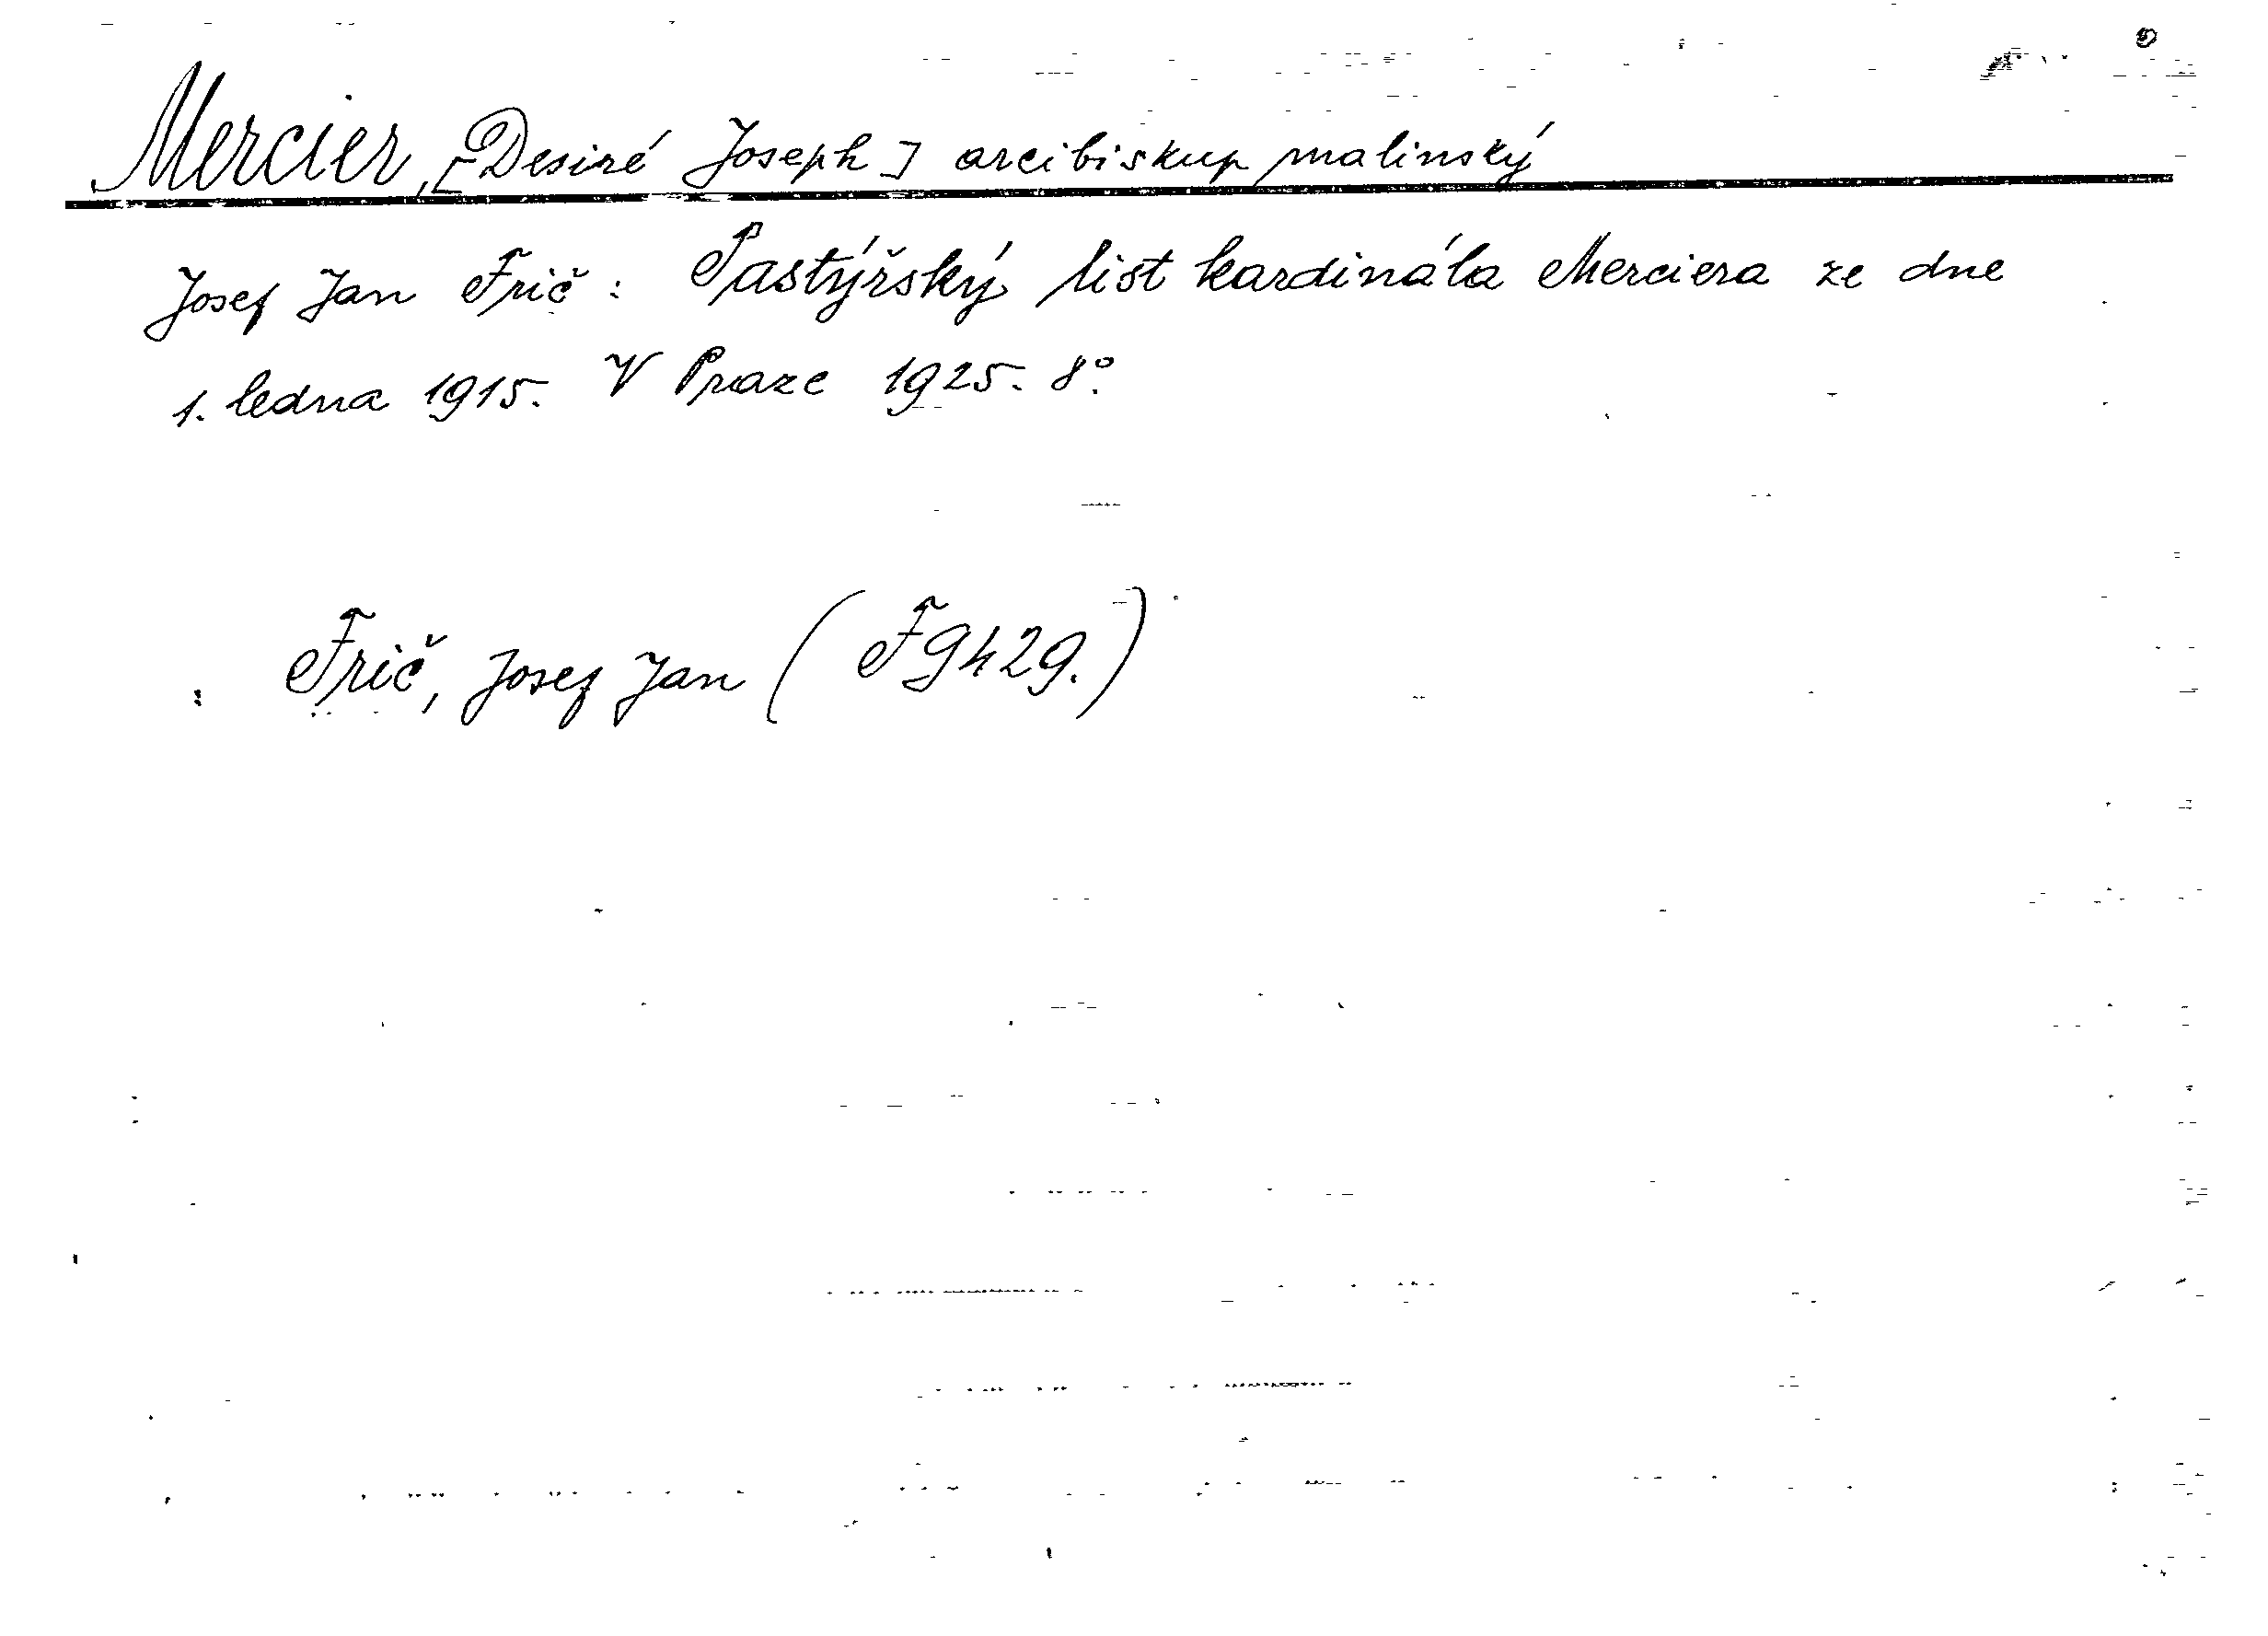 Mercier, [Desiré Joseph] arcibiskup malinský
Josef Jan Frič: Pastýřský list kardinála Merciera ze dne
1. ledna 1915. V Praze 1925. 8°.
: Frič, Josef Jan (F9429.)